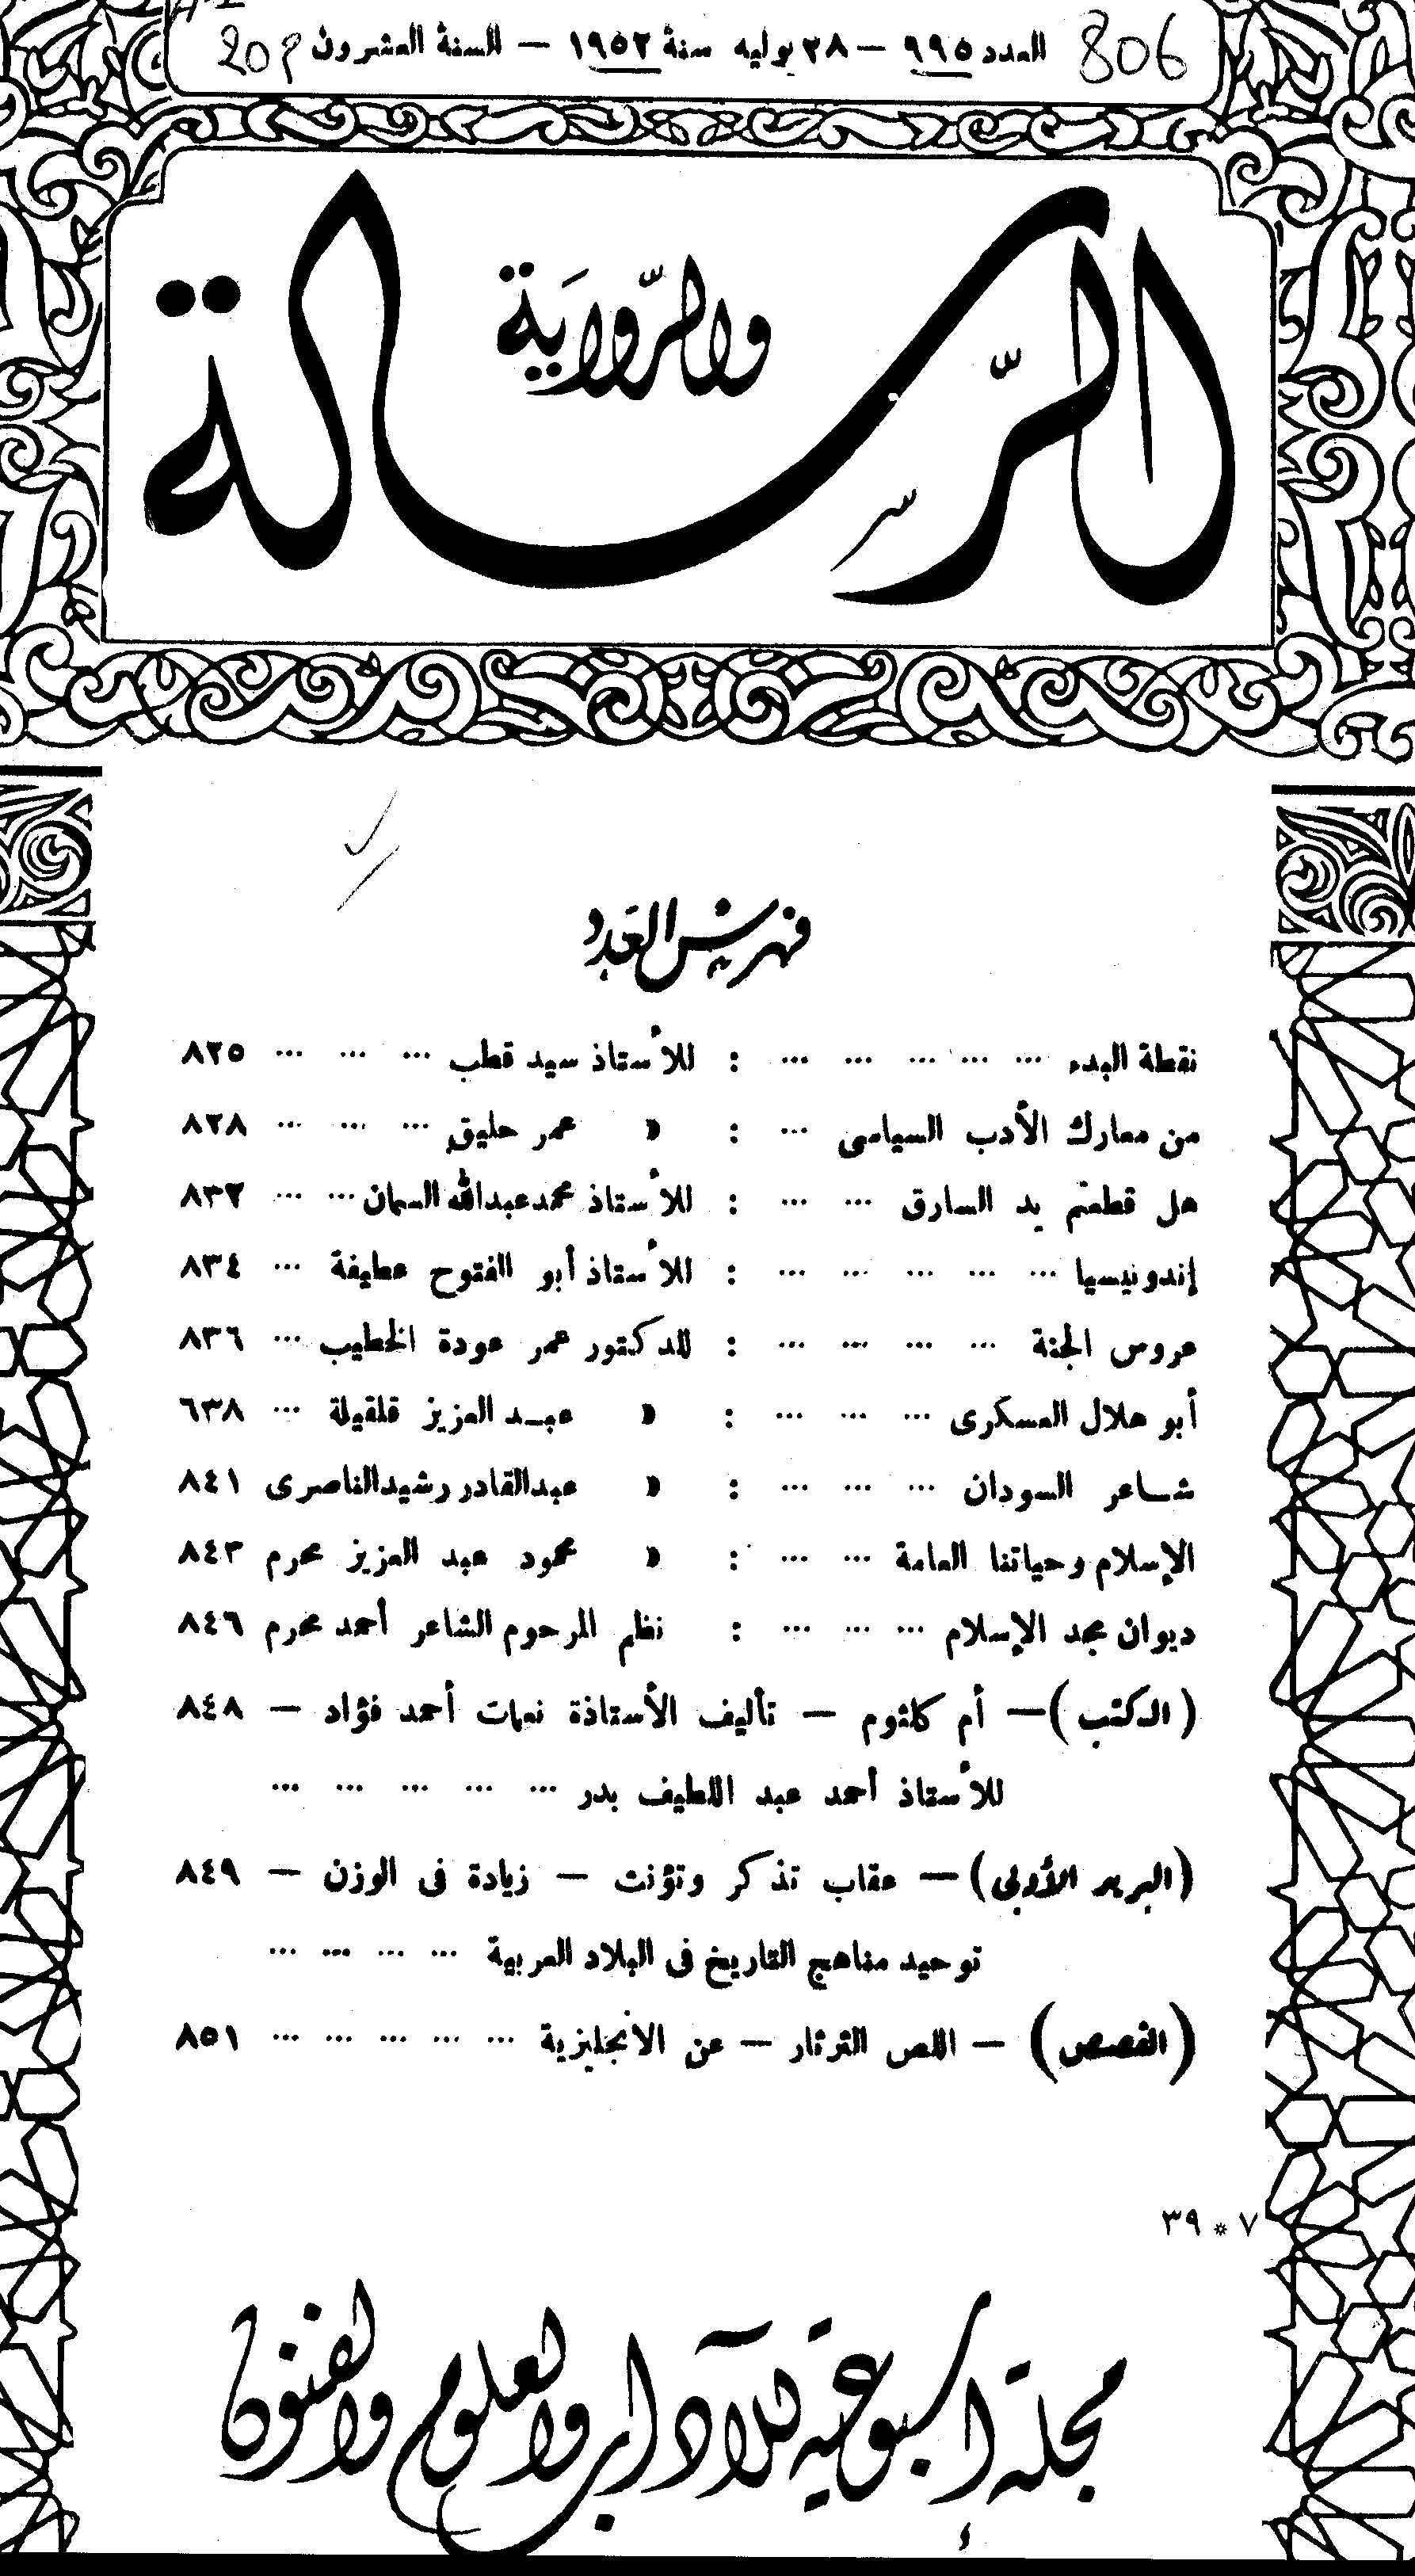 806 العدد ٩٩٥ — ٢٨ يوليه سنة ١٩٥٢ — السنة العشرون
الرسالة
والرواية
فهرس العدد
نقطة البدء ... ... ... ... ... : للأستاذ سيد قطب ... ... ... ٨٢٥
من معارك الأدب السياسى ... : » عمر حليق ... ... ... ٨٢٨
هل قطعتم يد السارق ... ... : للأستاذ محمد عبدالله السمان ... ... ٨٣٢
إندونيسيا ... ... ... ... ... : للأستاذ أبو الفتوح عطيفة ... ٨٣٤
عروس الجنة ... ... ... ... : للدكتور عمر عودة الخطيب ... ٨٣٦
أبو هلال العسكرى ... ... ... : » عبد العزيز قلقيلة ... ٦٣٨
شاعر السودان ... ... ... : » عبدالقادر رشيدالناصرى ٨٤١
الإسلام وحياتنا العامة ... ... : » محمود عبد العزيز محرم ٨٤٣
ديوان مجد الإسلام ... ... ... : نظم المرحوم الشاعر أحمد محرم ٨٤٦
( الكتب ) — أم كلثوم — تأليف الأستاذة نعمات أحمد فؤاد — ٨٤٨
للأستاذ أحمد عبد اللطيف بدر ... ... ... ... ...
(البريد الأدبى) — عقاب تذكر وتؤنث — زيادة فى الوزن — ٨٤٩
توحيد مناهج التاريخ فى البلاد العربية ... ... ... ...
(القصص) — اللص الثرثار — عن الانجليزية ... ... ... ... ... ٨٥١
٧ * ٣٩
مجلة إسبوعية للآداب والعلوم والفنون